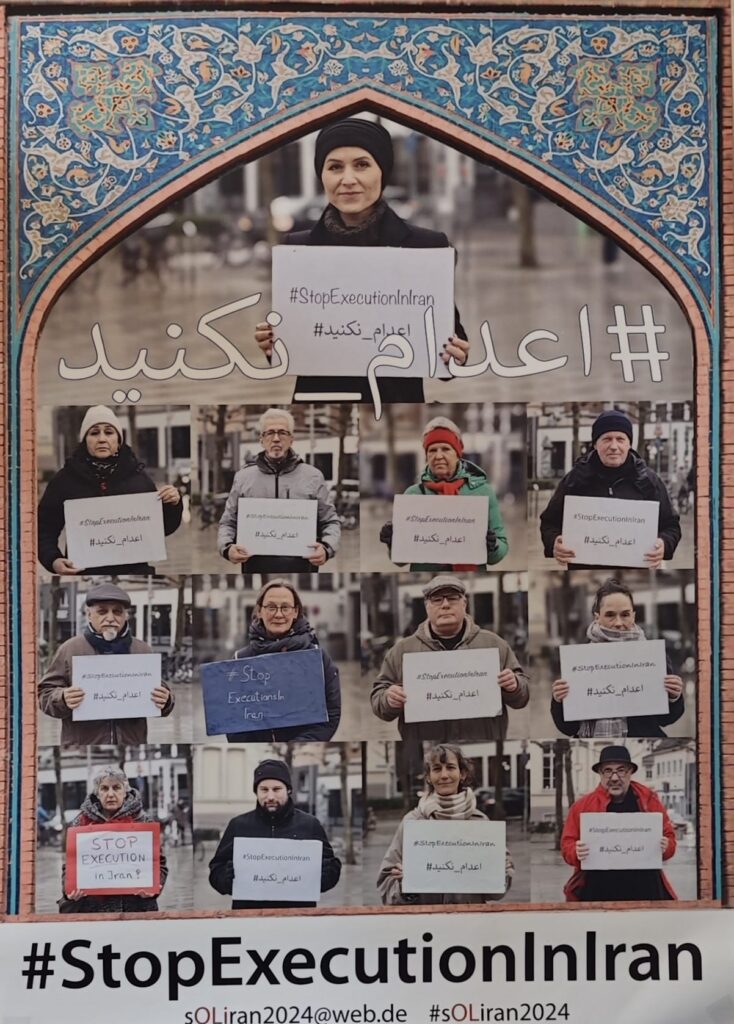 #StopExecutionInIran
#اعدام_نکنید
#اعدام_نکنید
#StopExecutionInIran
#اعدام_نکنید
#StopExecutionInIran
#اعدام_نکنید
#StopExecutionInIran
#اعدام_نکنید
#StopExecutionInIran
#اعدام_نکنید
#StopExecutionInIran
#اعدام_نکنید
#Stop
ExecutionsIn
Iran
#StopExecutionInIran
#اعدام_نکنید
#StopExecutionInIran
#اعدام_نکنید
STOP
EXECUTION
in Iran!
#StopExecutionInIran
#اعدام_نکنید
#StopExecutionInIran
#اعدام_نکنید
#StopExecutionInIran
#اعدام_نکنید
#StopExecutionInIran
sOLiran2024@web.de #sOLiran2024